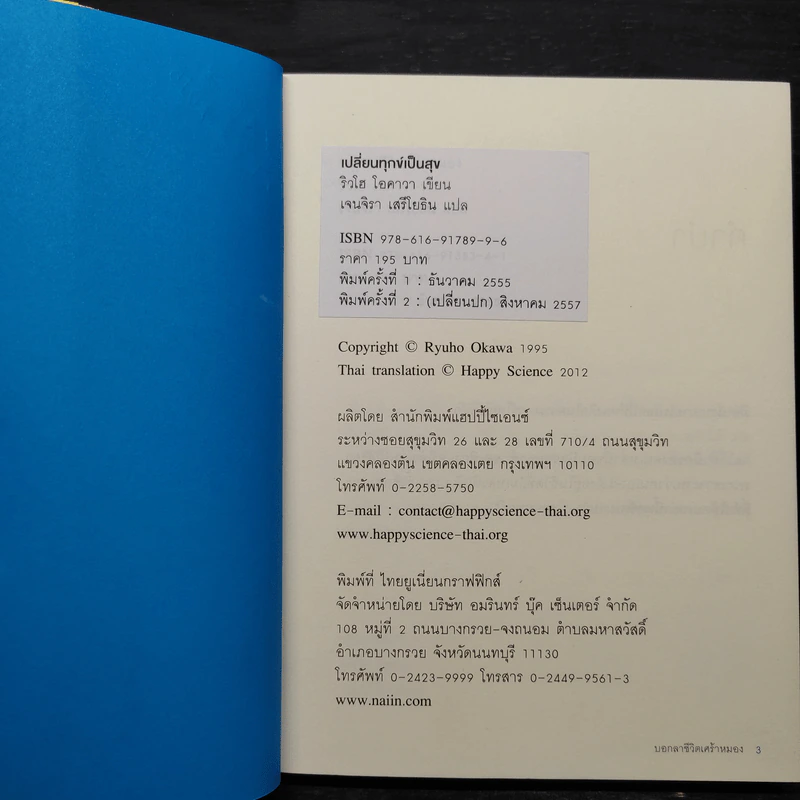 เปลี่ยนทุกข์เป็นสุข
ริวโฮ โอคาวา เขียน
เจนจิรา เสรีโยธิน แปล
ISBN 978-616-91789-9-6
ราคา 195 บาท
พิมพ์ครั้งที่ 1 : ธันวาคม 2555
พิมพ์ครั้งที่ 2 : (เปลี่ยนปก) สิงหาคม 2557
Copyright © Ryuho Okawa 1995
Thai translation © Happy Science 2012
ผลิตโดย สำนักพิมพ์แฮปปี้ไซเอนซ์
ระหว่างซอยสุขุมวิท 26 และ 28 เลขที่ 710/4 ถนนสุขุมวิท
แขวงคลองตัน เขตคลองเตย กรุงเทพฯ 10110
โทรศัพท์ 0-2258-5750
E-mail : contact@happyscience-thai.org
www.happyscience-thai.org
พิมพ์ที่ ไทยยูเนี่ยนกราฟฟิกส์
จัดจำหน่ายโดย บริษัท อมรินทร์ บุ๊ค เซ็นเตอร์ จำกัด
108 หมู่ที่ 2 ถนนบางกรวย-จงถนอม ตำบลมหาสวัสดิ์
อำเภอบางกรวย จังหวัดนนทบุรี 11130
โทรศัพท์ 0-2423-9999 โทรสาร 0-2449-9561-3
www.naiin.com
บอกลาชีวิตเศร้าหมอง 3